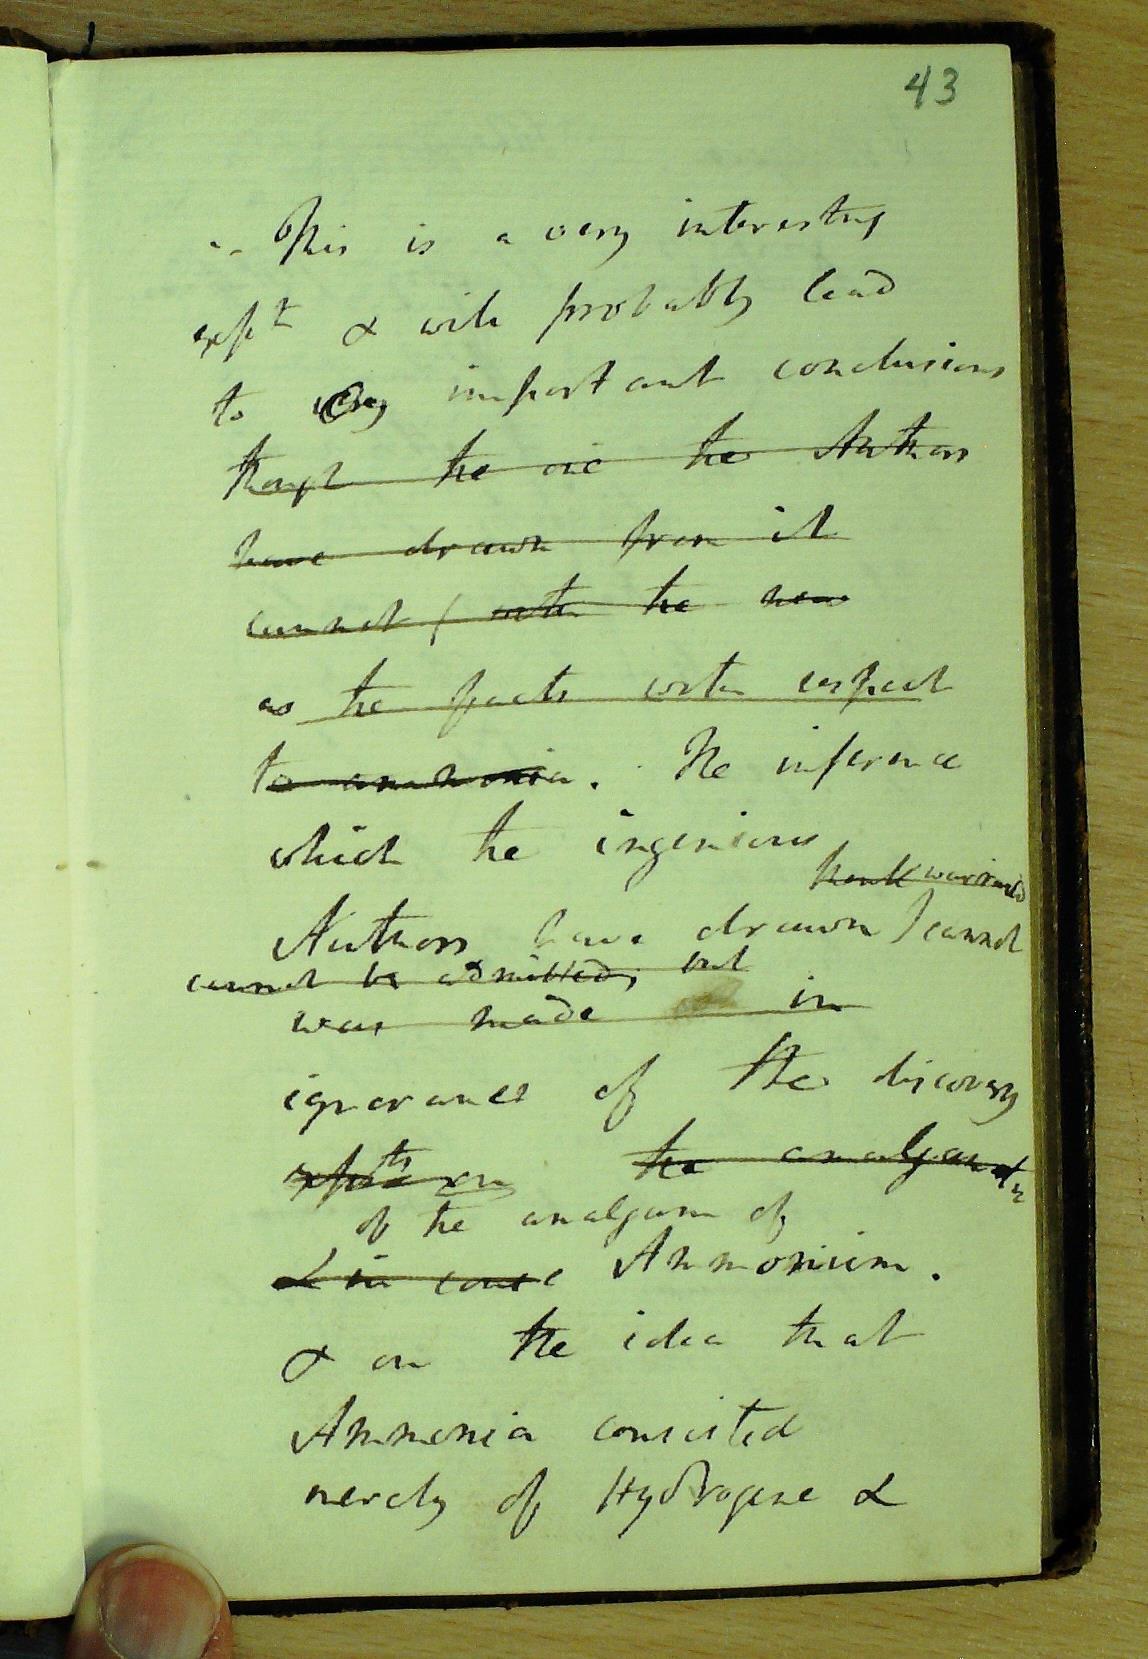 43
-- This is a very interesting
expt & will probably lead
to very important conclusions
though the one the Authors
have drawn from it
cannot / with the new
as the facts with respect
to ammonia. The inference
which the ingenious
warranted
Authors have drawn / cannot
cannot be admitted, but
was made in
ignorance of the discovery
expts on the amalgam
of the amalgam of
Ammonium.
& on the idea that
Ammonia consisted
merely of Hydrogene &